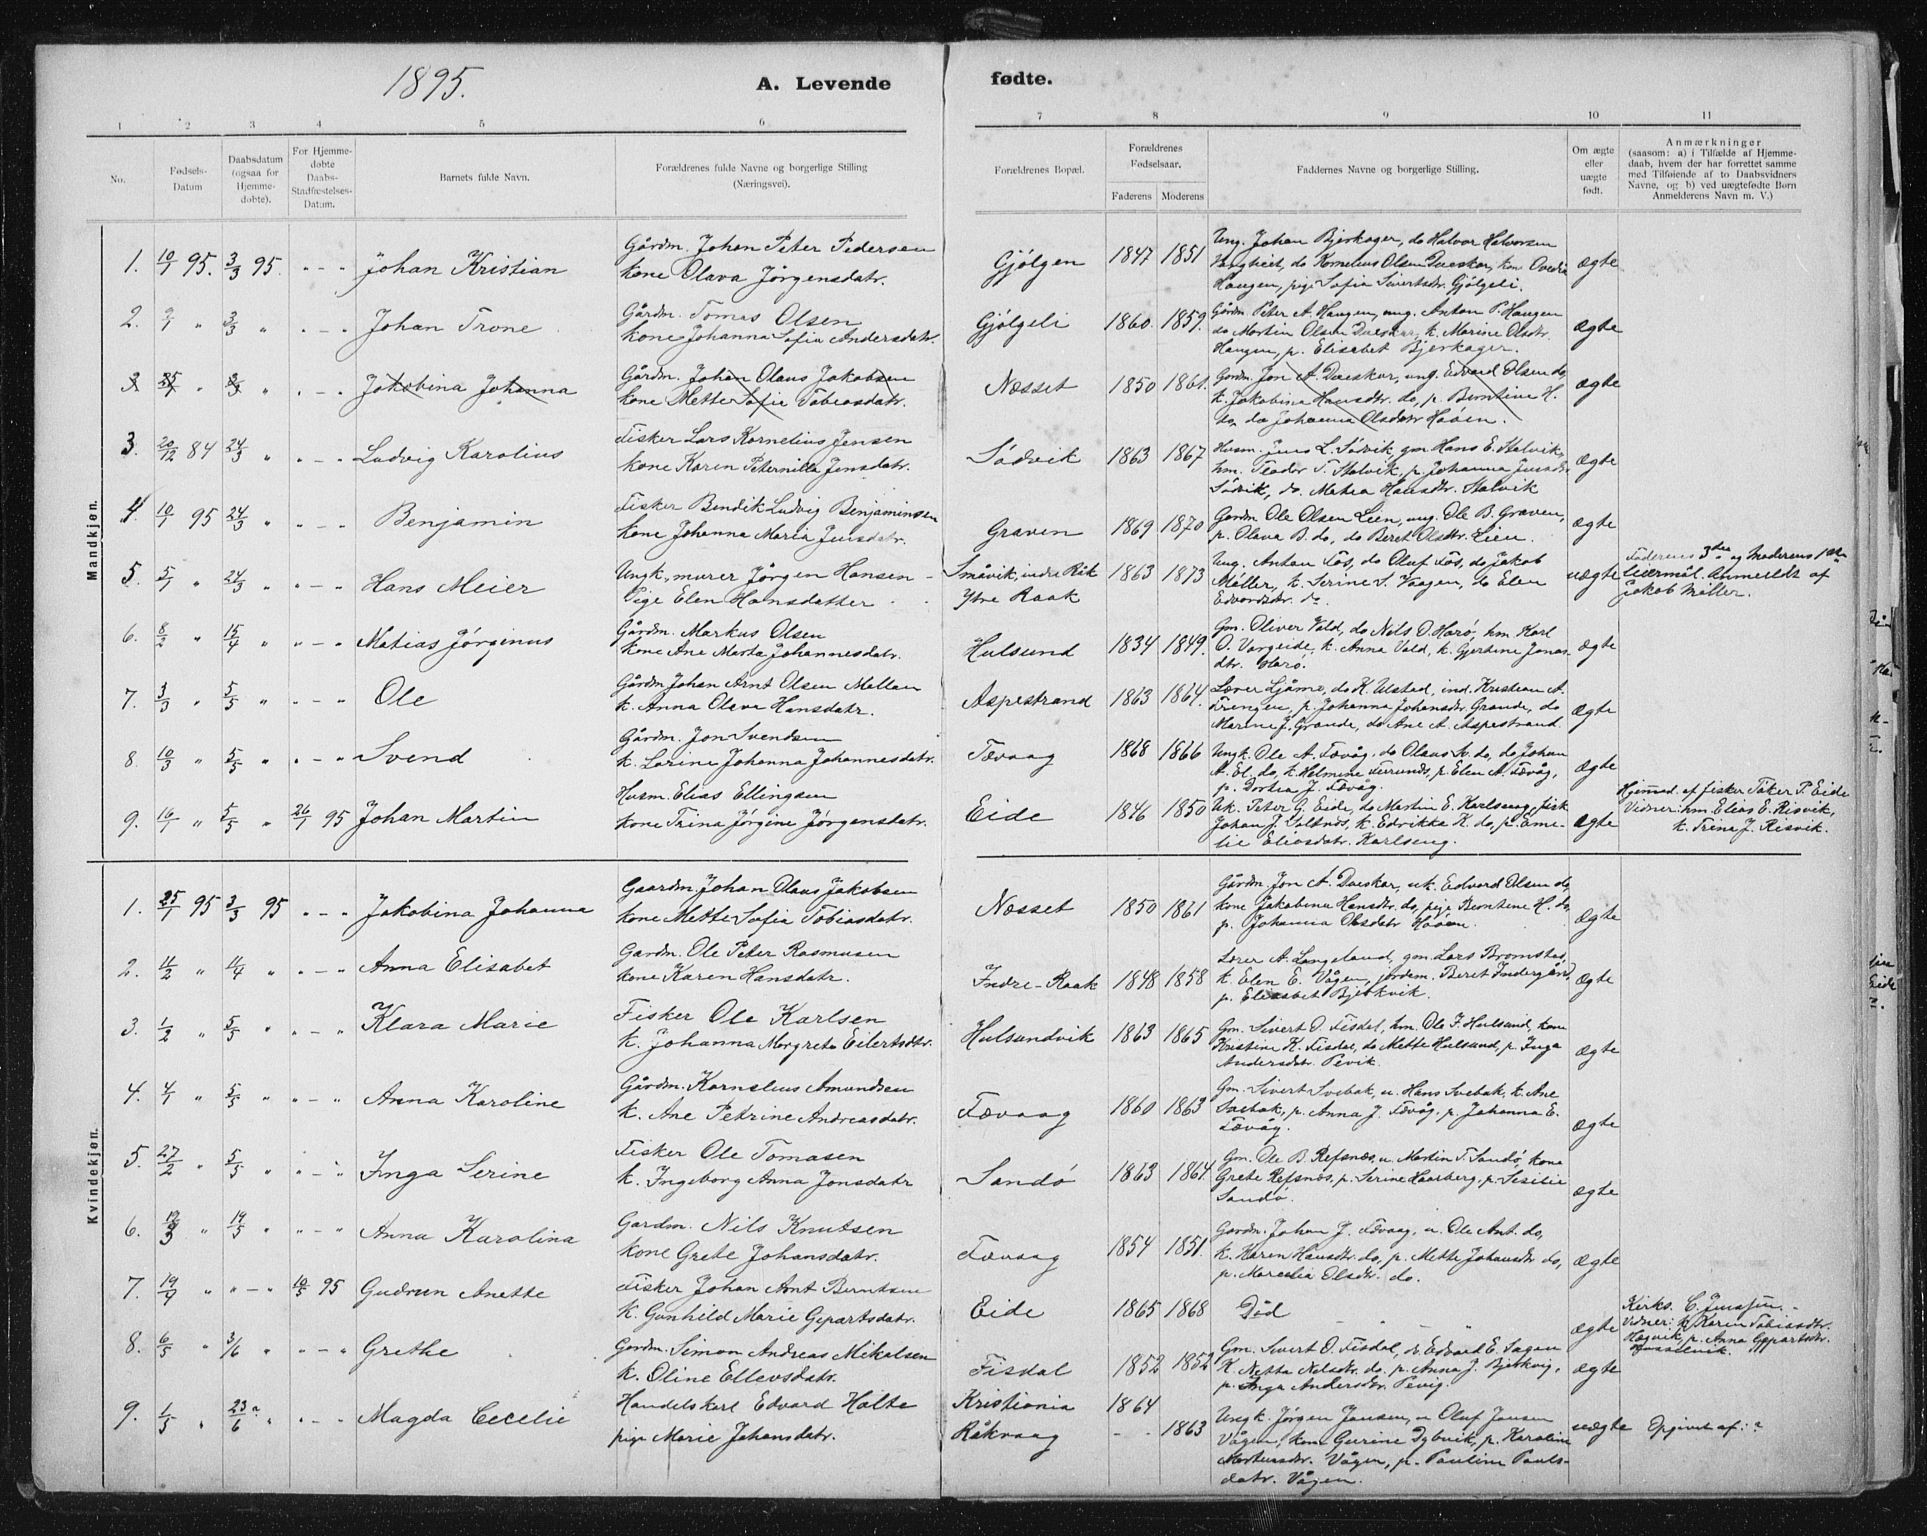 1895.
A. Levende fødte.
1 2 3 4 5 6 7 8 9 10 11
No.
Fødsels-
Datum
Daabsdatum
(ogsaa for
Hjemme-
døbte).
For Hjemme-
døbte
Daabs-
Stadfæstelses-
Datum.
Barnets fulde Navn.
Forældrenes fulde Navne og borgerlige Stilling
(Næringsvei).
Forældrenes Bopæl.
Forældrenes
Fødselsaar.
Faderens Moderens
Faddernes Navne og borgerlige Stilling.
Om ægte
eller
uægte
født.
Anmærkninger
(saasom: a) i Tilfælde af Hjemme-
daab, hvem der har forrettet samme
med Tilføiende af to Daabsvidners
Navne, og b) ved uægtefødte Børn
Anmelderens Navn m. V.)
Mandkjøn.
1. 10/1 95. 3/3 95. " - " Johan Kristian
Gårdm. Johan Peter Pedersen
kone Olava Jörgensdatr.
Gjölgen 1847 1851
Ung. Johan Bjerkager, do Halvor Halvorsen
do Kornelius Olsen Dueskar, kone
Haugen, pige Sofia Sivertsdtr. Gjölgeli.
ægte
2. 9/1 " 3/3 " " - " Johan Trone
Gårdm. Tomas Olsen
kone Johanna Sofia Andersdatr.
Gjölgeli 1860. 1859.
Gårdm Peter A. Haugen, ung. Anton P. Haugen
do Martin Olsen Dueskar, k. Marine Olsdtr.
Haugen, p. Elisabet Bjerkager.
ægte
3 25/1 " 3/3 " " - " Jakobina Johanna
Gårdm. Johan Olaus Jakobsen
kone Mette Sofie Tobiasdatr.
Næsset 1850 1861.
Gårdm. Jon A. Dueskar, ung. Edvard Olsen do
k. Jakobina Hansdtr. do, p. Berntine H.
do, do Johanna Olsdatr Hööen.
ægte
3. 20/12 84 24/3 " " - " Ludvig Karolius
Fisker Lars Kornelius Jensen
kone Karen Peternilla Jensdatr.
Södvik 1863 1867
Husm. Jens L. Södvik, gm Hans E. Stalvik,
hm. Teodor T. Stalvik, p. Johanna Jensdtr
Södvik, do. Metea Hansdtr. Stalvik
ægte
4. 10/1 95 24/3 " " - " Benjamin
Fisker Bendik Ludvig Benjaminsen
kone Johanna Maria Jensdatr.
Graven 1869 1870
Gårdm Ole Olsen Lien, ung. Ole B. Graven,
p. Olava B. do, do Beret Olsdtr. Lien.
ægte
5. 5/1 " 24/3 " " - " Hans Meier
Ungk., murer Jörgen Hansen -
Pige Elen Hansdatter
Småvik, indre Råk
Ytre Raak
1863 1873
Ung. Anton Fos, do Oluf Fos, do Jakob
Möller, k. Serine S. Vaagen, do Elen
Edvardsdtr. do
uægte
Faderens 3die og Moderens 1ste
Leiermål. Anmeldt af
Jakob Möller.
6. 8/2 " 15/4 " " - " Matias Jörginus
Gårdm. Markus Olsen
kone Ane Marta Johannesdatr.
Hulsund 1834 1849.
Gm. Oliver Vold, do Nils O. Harö, hm Karl
O. Vorgeide, k. Anna Vold, k. Gjertine Jonas-
dtr. Harö.
ægte
7. 3/3 " 5/5 " " - " Ole
Gårdm Johan Arnt Olsen Mellan
k. Anna Oleva Hansdatr.
Aspestrand 1863 1864.
Lærer Ljåmo, do K. Ulstad, ind. Kristian A.
p. Johanna Johansdtr. Grande, do
Marine J. Grande, do Ane A. Aspestrand.
ægte
8. 10/3 " 5/5 " " - " Svend
Gårdm. Jon Svendsen
k. Lorine Johanna Johannesdatr.
Tævaag 1868 1866
Ungk. Ole A. Tævåg, do Olaus A. do, do Johan
A. El. do, k. Helmine p. Elen A. Tævåg,
p. Dortea J. Tævåg.
ægte
9. 16/1 " 5/5 " 26/1 95 Johan Martin
Husm. Elias Ellingsen
kone Trina Jörgine Jörgensdatr.
Eide 1846 1850
Uk. Peter G. Eide, do Martin E. Karlseng, fisk
Johan J. Saltnes, k. Edvikka K. do, p. Eme-
lie Eliasdatr. Karlseng.
ægte
Hjemmed. af fisker Töker P. Eide
Vidner: hm. Elias E. Risvik,
k. Trina J. Risvik.
Kvindekjøn.
1. 25/1 95 3/3 95 " - " Jakobina Johanna
Gaardm. Johan Olaus Jakobsen
kone Mette Sofia Tobiasdatr.
Næsset 1850 1861
Gårdm. Jon A. Dueskar, uk. Edvard Olsen do,
kone Jakobina Hansdtr. do, pige Berntine H. do,
p. Johanna Olsdatr Hööen.
ægte
2. 11/2 " 11/4 " " - " Anna Elisabet
Gardm. Ole Peter Rasmusen
kone Karen Hansdatr.
Indre-Raak 1848 1858
Lærer A. Langeland, gm. Lars Bromstad,
k. Elen E. Vågen, jordem. Beret Indergård,
p. Elisabet Bjerkvik.
ægte
3. 1/2 " 5/5 " " - " Klara Marie
Fisker Ole Karlsen
k. Johanna Margrete Eilertsdtr.
Hulsundvik 1863 1865
Gm. Sivert O. Fisdal, hm. Ole J. Hulsund, kone
Kristine K. Fisdal, do Mette Hulsund, p. Inga
Andersdatr. Pevik.
ægte
4. 4/1 " 5/5 " " - " Anna Karoline
Gårdm. Kornelius Amundsen
k. Ane Petrine Andreasdatr.
Tævaag 1860 1863
Gm. Sivert Svebak, u. Hans Svebak, k. Ane
Svebak, p. Anna J. Tævåg, p. Johanna E.
Tævåg.
ægte
5. 27/2 " 5/5 " " - " Inga Serine
Fisker Ole Tomasen
k. Ingeborg Anna Jonsdatr
Sandö 1863 1864.
Gm. Ole B. Refsnæs, u. Martin T. Sandö, kone
Grete Refsnæs, p. Serine Haarberg, p. Sesilie
Sandö.
ægte
6. 12/3 " 19/5 " " - " Anna Karolina
Gardm. Nils Knutsen
kone Grete Johansdatr.
Tævaag 1854 1851.
Gardm. Johan J. Tævaag, u. Ole Ant. do,
k. Karen Hansdtr. do, p. Mette Johansdtr do,
p. Marselia Olsdtr. do.
ægte
7. 19/4 " " - " 10/5 95 Gudrun Anette
Fisker Johan Arnt Berntsen
k. Gunhild Marie Gepartsdatr.
Eide 1865 1868 Död
ægte
Kirks. C. Jenssen. -
Vidner: k. Karen Tobiasdtr.
Hægvik, p. Anna Gepartsdtr.
8. 6/5 " 3/6 " " - " Grethe
Gardm. Simon Andreas Mikalsen
k. Oline Ellevsdatr.
Fisdal 1852 1852
Gm. Sivert O. Fisdal, do Edvard E. Sagen
K. Netta Nelsdtr. do, p. Anna J. Bjerkvig,
p. Inga Andersdtr. Pevig.
ægte
9. 1/5 " 23/6 " " - " Magda Cecelie
Handelskarl Edvard Holte
pige Marie Johansdatr.
Kristiania 1864
Råkvaag - - 1863
Ungk. Jörgen Jansen, u. Oluf Jansen
Vågen, kone Gurine Dybvik, p. Karoline
Mortensdtr. Vågen, p. Pauline Pauls-
datr. Vågen.
uægte Opgivet af: ?